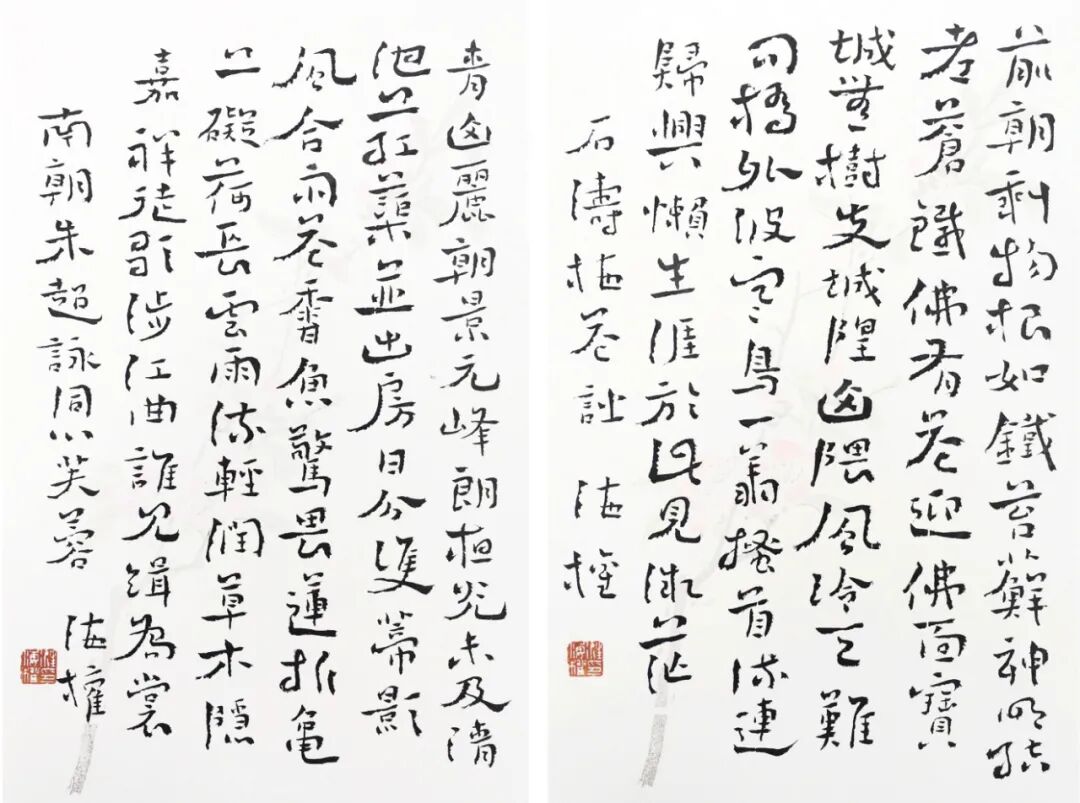 前朝剩物根如鐵苔蘚神明結
老蒼鐵佛有花迎佛面寶
城無樹支城隍山隈風冷天難
問橋外波寒鳥一翔搔首流連
歸興懶生涯於此見微茫
石濤梅花詩 海權
青山麗朝景元峰朗夜光未及清
池上紅蕖並出房日分雙蒂影
風合兩花香魚驚畏蓮折龜
上礙荷長雲雨流輕潤草木隱
嘉祥徒歌涉江曲誰見緝為裳
南朝朱超詠同心芙蓉 海權